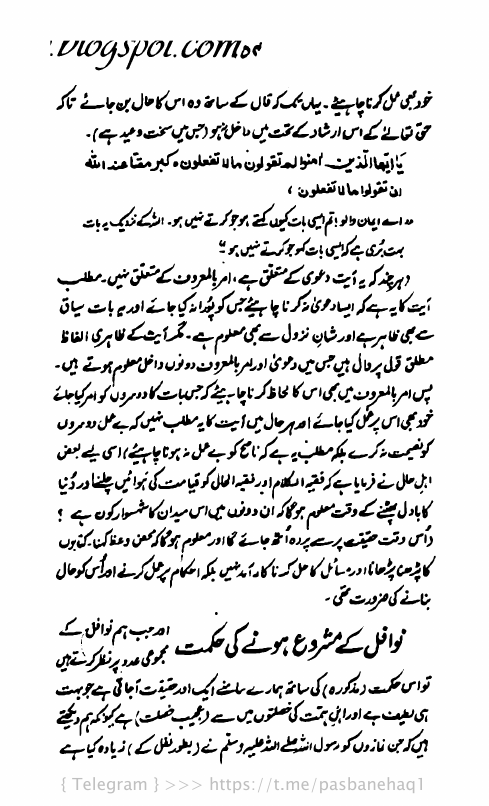 .blogspot.com ۵۴
خود بھی عمل کرنا چاہیئے۔ یہاں تک کہ قال کے ساتھ وہ اس کا حال بن جائے تاکہ
حق تعالےٰ کے اس ارشاد کے تحت میں داخل نہ ہو (جس میں سخت وعید ہے)۔
یٰا ایھا الذین اٰمنوا لم تقولون ما لا تفعلون ہ کبر مقتا عند اللہ
ان تقولوا ما لا تفعلون ،
"اے ایمان والو! تم ایسی بات کیوں کہتے ہو جو کرتے نہیں ہو۔ اللہ کے نزدیک یہ بات
بہت بُری ہے کہ ایسی بات کہو جو کرتے نہیں ہو"
(ہرچند کہ یہ آیت دعویٰ کے متعلق ہے، امر بالمعروف کے متعلق نہیں۔ مطلب
آیت کا یہ ہے کہ ایسا دعویٰ نہ کرنا چاہیئے جس کو پُورا نہ کیا جائے اور یہ بات سیاق
سے بھی ظاہر ہے اور شانِ نزول سے بھی معلوم ہے۔ مگر آیت کے ظاہری الفاظ
مطلق قول پر دال ہیں جس میں دعویٰ اور امر بالمعروف دونوں داخل معلوم ہوتے ہیں۔
پس امر بالمعروف میں بھی اس کا لحاظ کرنا چاہیئے کہ جس بات کا دوسروں کو امر کیا جائے
خود بھی اس پر عمل کیا جائے اور ہر حال میں آیت کا یہ مطلب نہیں کہ بے عمل دوسروں
کو نصیحت نہ کرے بلکہ مطلب یہ ہے کہ ناصح کو بے عمل نہ ہونا چاہیئے) اسی لیے بعض
اہلِ حال نے فرمایا ہے کہ فقیہ الکلام اور فقیہ الحال کو قیامت کی ہوائیں چلنے اور دُنیا
کا بادل پھٹنے کے وقت معلوم ہوگا کہ ان دونوں میں اس میدان کا شہسوار کون ہے ؟
(اُس وقت حقیقت پر سے پردہ اُٹھ جائے گا اور معلوم ہوگا کہ محض وعظ کہنا، کتابوں
کا پڑھنا پڑھانا اور مسائل کا حل کرنا کارآمد نہیں بلکہ احکام پر عمل کرنے اور اُس کو حال
بنانے کی ضرورت تھی۔
نوافل کے مشروع ہونے کی حکمت اور جب ہم نوافل کے
مجموعی عدد پر نظر کرتے ہیں
تو اس حکمت (مذکورہ) کی ساتھ ہمارے سامنے ایک اور حقیقت آجاتی ہے جو بہت
ہی لطیف ہے اور اپنی ہمت کی خصلتوں میں سے (عجیب خصلت) ہے کیونکہ ہم دیکھتے
ہیں کہ جن نمازوں کو رسول اللہ صلے اللہ علیہ وسلم نے (بطور نفل کے) زیادہ کیا ہے
{ Telegram } >>> https://t.me/pasbanehaq1